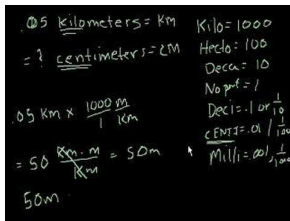 .05 kilometers = km
= ? centimeters = cm
.05 km x 1000 m / 1 km
= 50 km.m / km = 50m
50m
Kilo = 1000
Hecto = 100
Deca = 10
No pref = 1
Deci = .1 or 1/10
CENTI = .01 / 1/100
Milli = .001, 1/1000